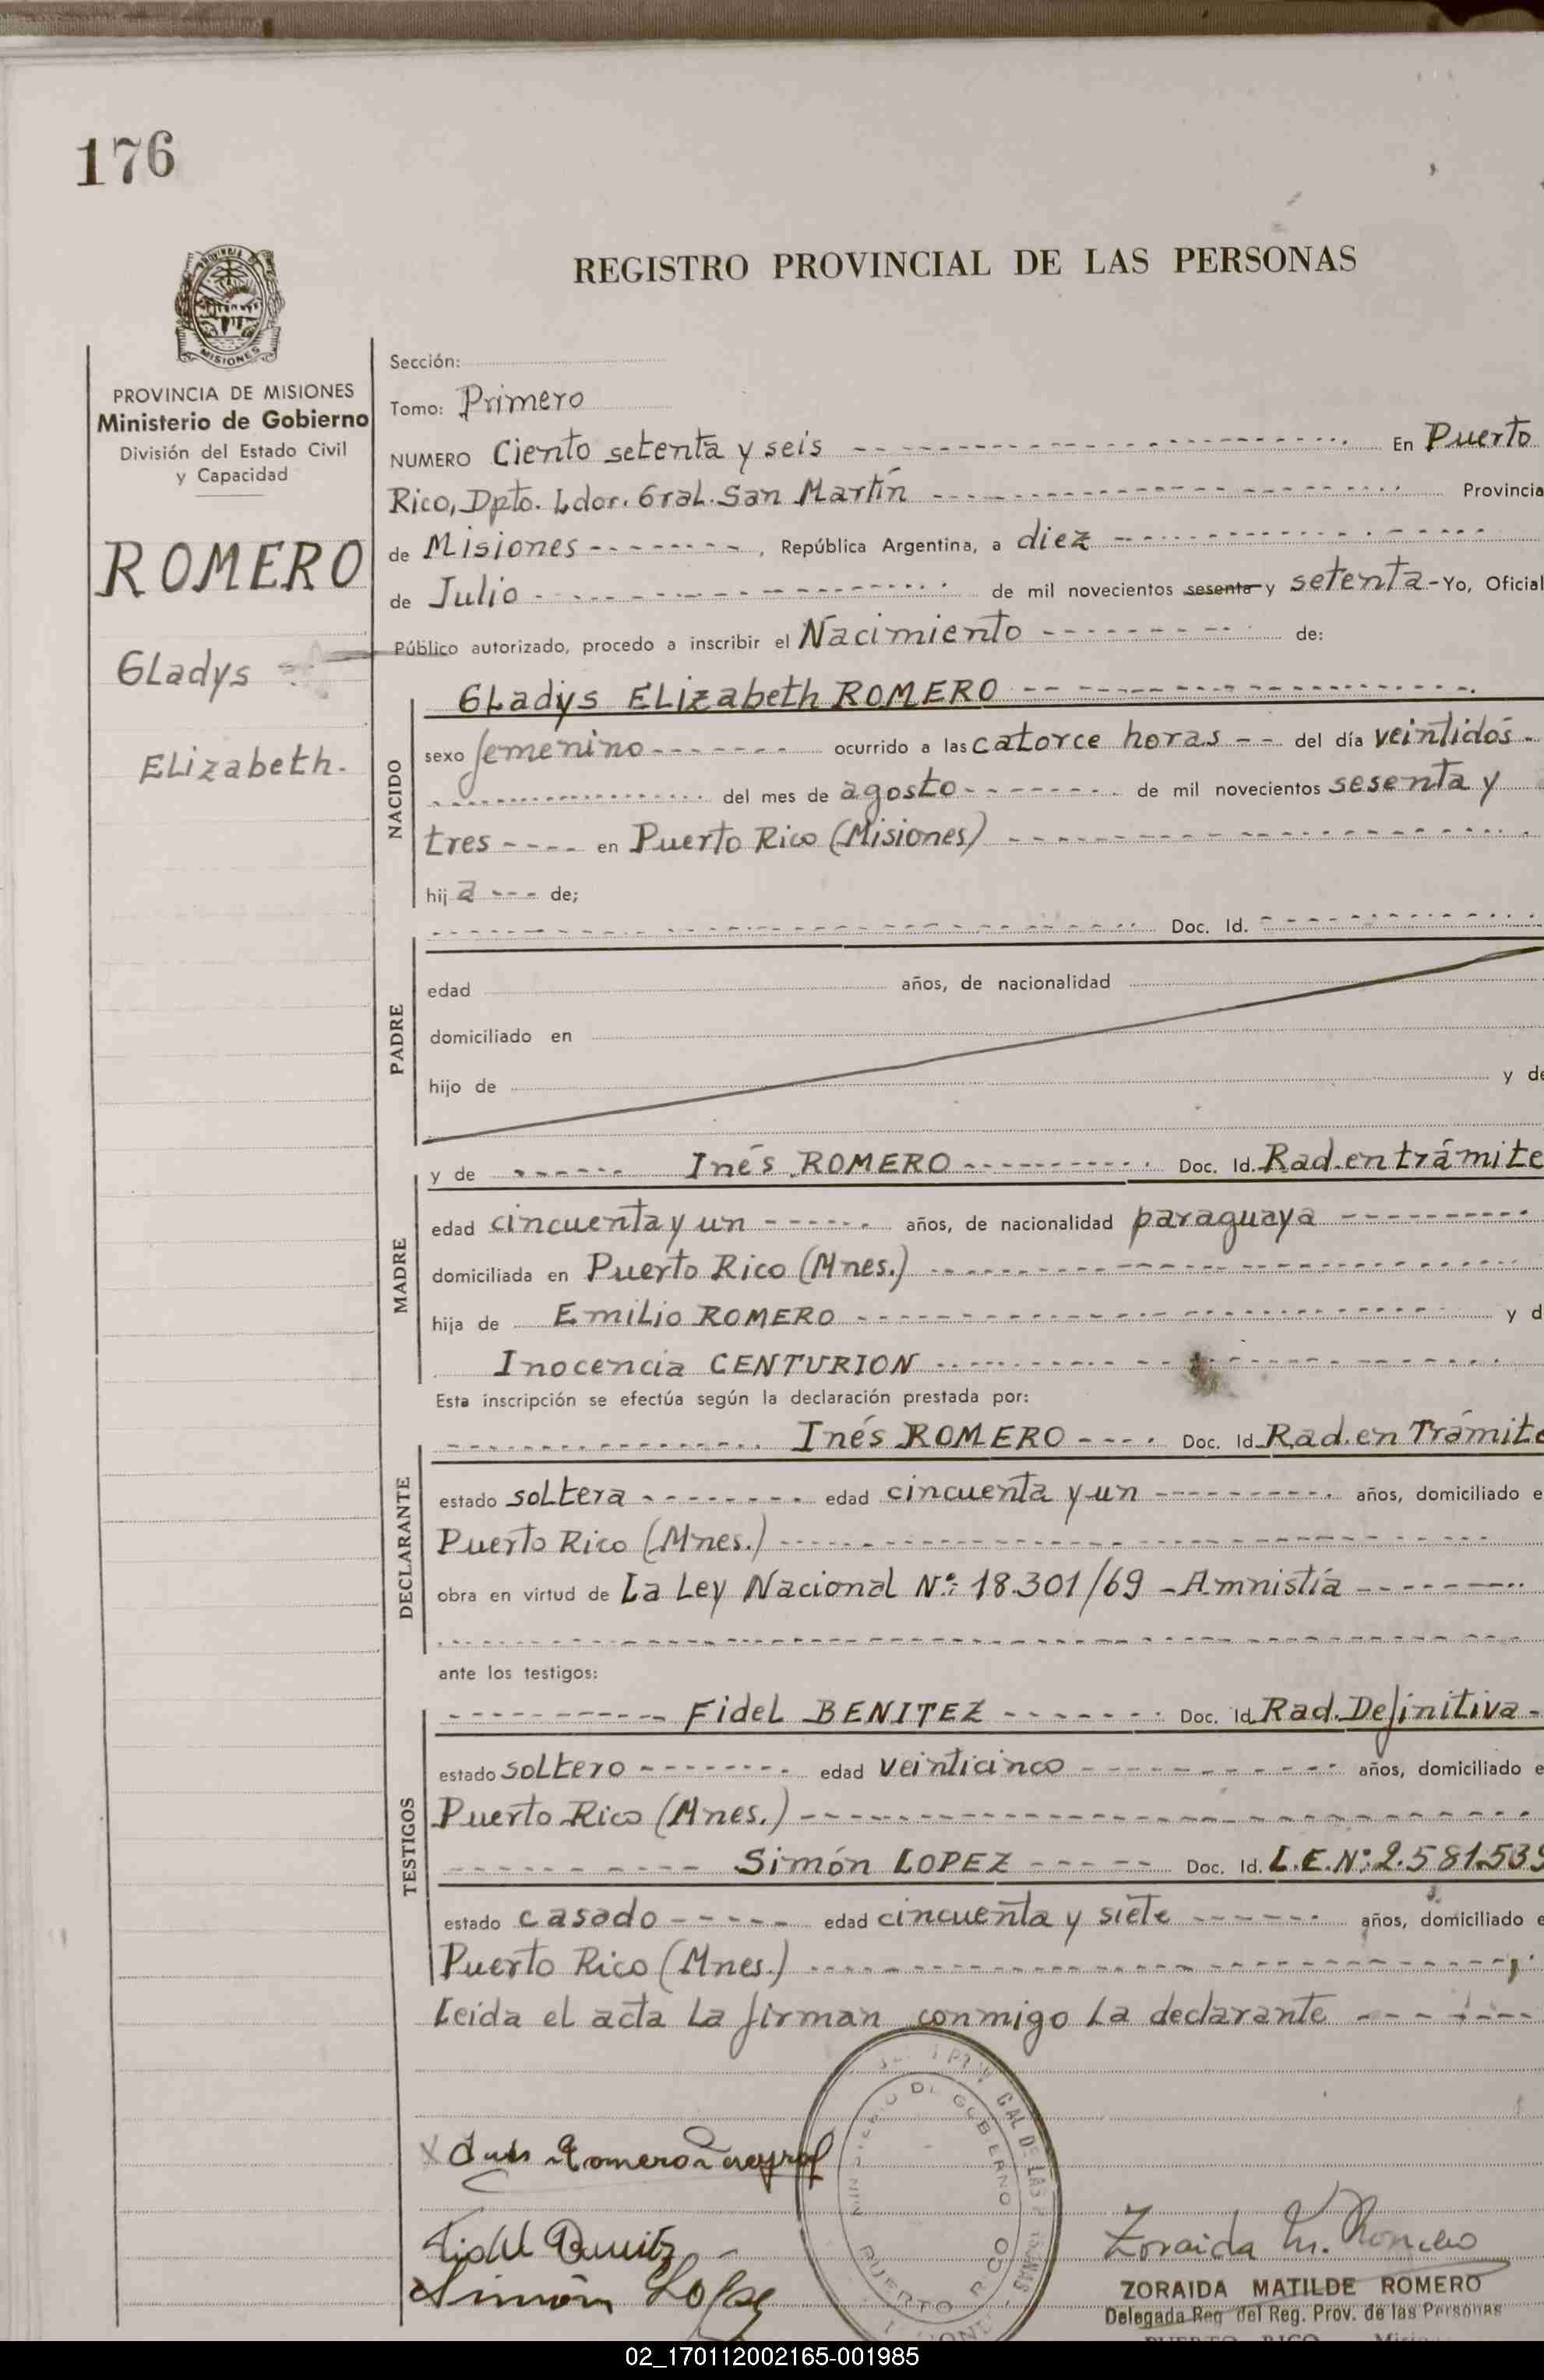 176
REGISTRO PROVINCIAL DE LAS PERSONAS
MISIONES
PROVINCIA DE MISIONES
Ministerio de Gobierno
División del Estado Civil
y Capacidad
ROMERO
Gladys
Elizabeth.
Sección:
Tomo: Primero
NUMERO Ciento setenta y seis En Puerto
Rico, Dpto. Ldor. Gral. San Martín Provincia
de Misiones, República Argentina, a diez
de Julio de mil novecientos sesenta y setenta - Yo, Oficial
Público autorizado, procedo a inscribir el Nacimiento de:
Gladys Elizabeth ROMERO
NACIDO
sexo femenino ocurrido a las catorce horas del día veintidós
del mes de agosto de mil novecientos sesenta y
tres en Puerto Rico (Misiones)
hija de;
Doc. Id.
PADRE
edad años, de nacionalidad
domiciliado en
hijo de y de
y de Inés ROMERO Doc. Id. Rad. en trámite
MADRE
edad cincuenta y un años, de nacionalidad paraguaya
domiciliada en Puerto Rico (Mnes.)
hija de Emilio ROMERO y d
Inocencia CENTURION
Esta inscripción se efectúa según la declaración prestada por:
Inés ROMERO Doc. Id. Rad. en Trámite
DECLARANTE
estado soltera edad cincuenta y un años, domiciliado e
Puerto Rico (Mnes.)
obra en virtud de La Ley Nacional Nº: 18.301/69 - Amnistía
ante los testigos:
Fidel BENITEZ Doc. Id. Rad. Definitiva
TESTIGOS
estado soltero edad veinticinco años, domiciliado e
Puerto Rico (Mnes.)
Simón LOPEZ Doc. Id. L.E. Nº: 2.581.539
estado casado edad cincuenta y siete años, domiciliado e
Puerto Rico (Mnes.)
Leída el acta la firman conmigo la declarante
Romero
Fidel Benitez
Simón Lopez
GOBIERNO
PUERTO RICO
Zoraida M. Romero
ZORAIDA MATILDE ROMERO
Delegada Reg del Reg. Prov. de las Personas
PUERTO RICO
02_170112002165-001985